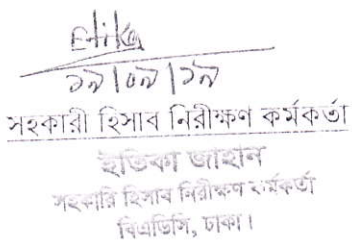 Etika
১৯|০৯|১৯
সহকারী হিসাব নিরীক্ষণ কর্মকর্তা
ইতিকা জাহান
সহকারি হিসাব নিরীক্ষণ কর্মকর্তা
বিএডিসি, ঢাকা।